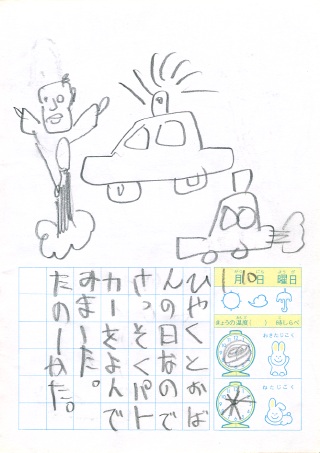 1月10日　曜日
きょうの温度(　)　時しらべ
おきたじこく
ねたじこく
ひやくとおば
んの日なので
さっそくパト
カーをよんで
みました。
たのしかた。